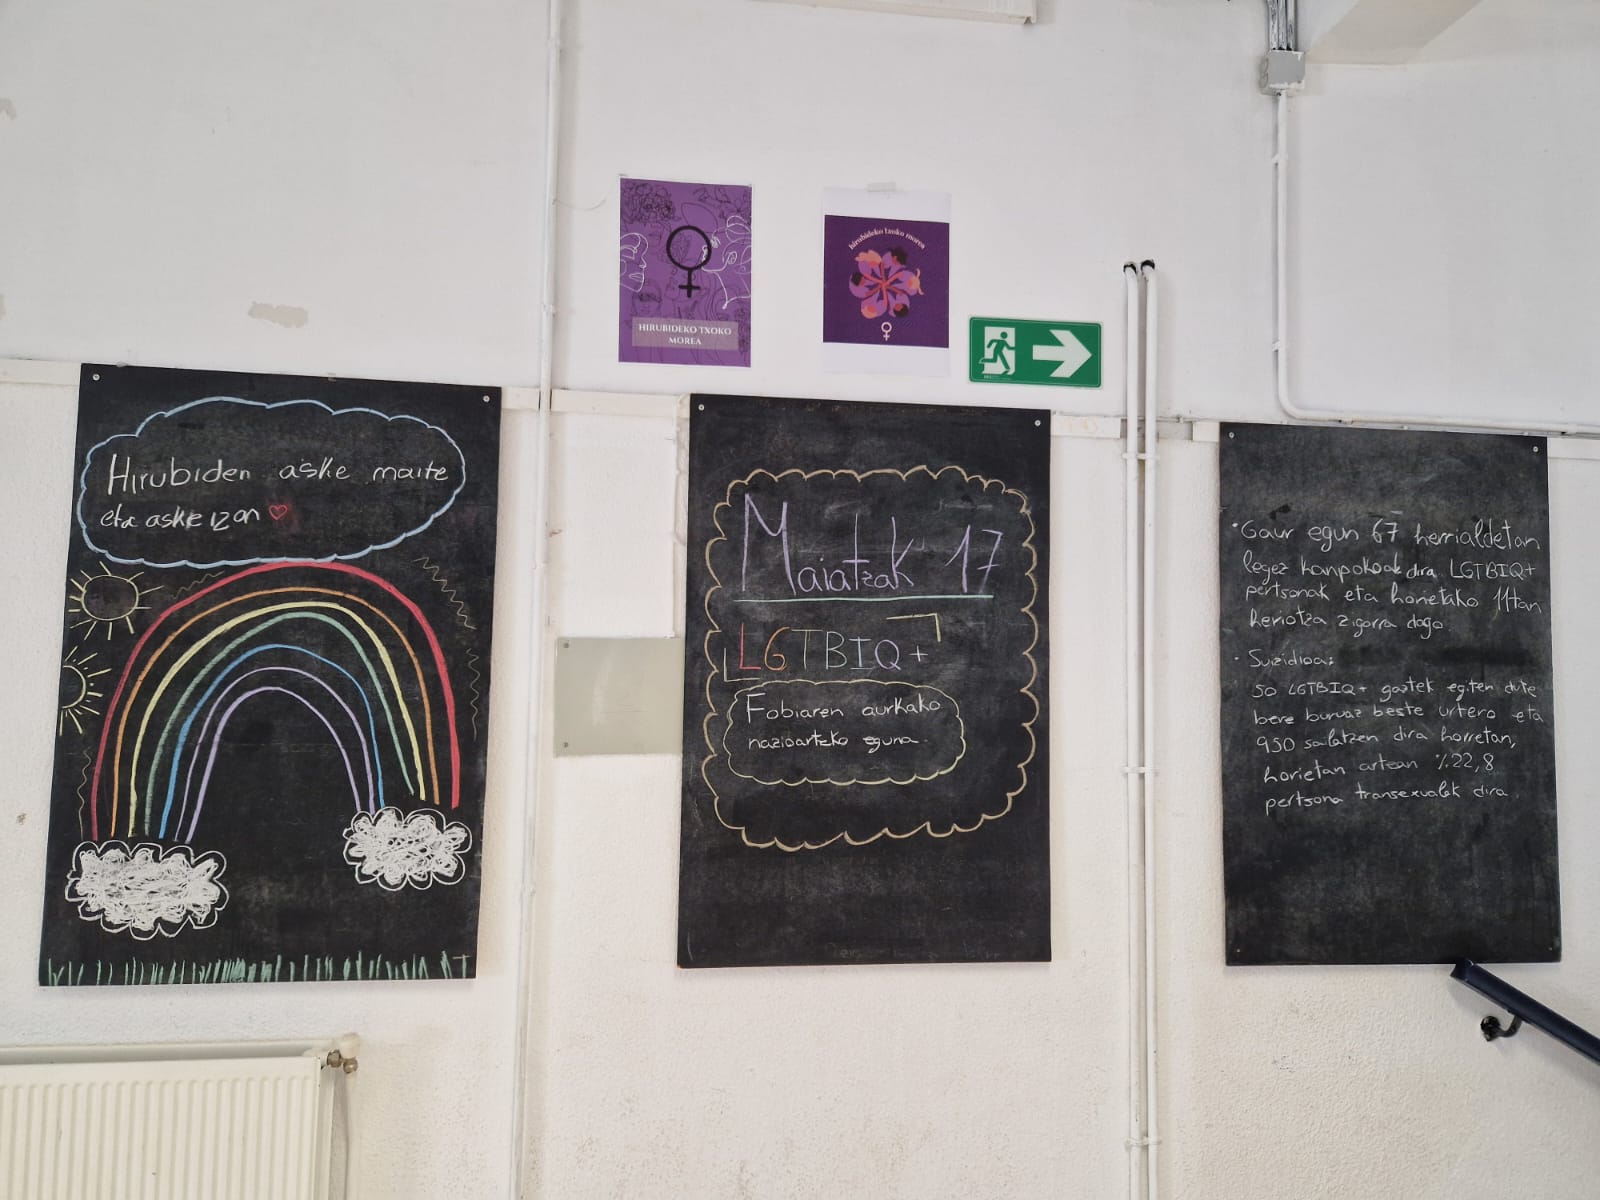 HIRUBIDEKO TXOKO
MOREA
hirubideko txoko morea
Hirubiden aske maite
eta aske izan
Maiatzak 17
LGTBIQ+
Fobiaren aurkako
nazioarteko eguna.
· Gaur egun 67 herrialdetan
legez kanpokoak dira LGTBIQ+
pertsonak eta horietako 11tan
heriotza zigorra dago.
· Suizidioa:
50 LGTBIQ+ gaztek egiten dute
bere buruaz beste urtero eta
950 saiatzen dira horretan,
horietan artean %22,8
pertsona transexualak dira.